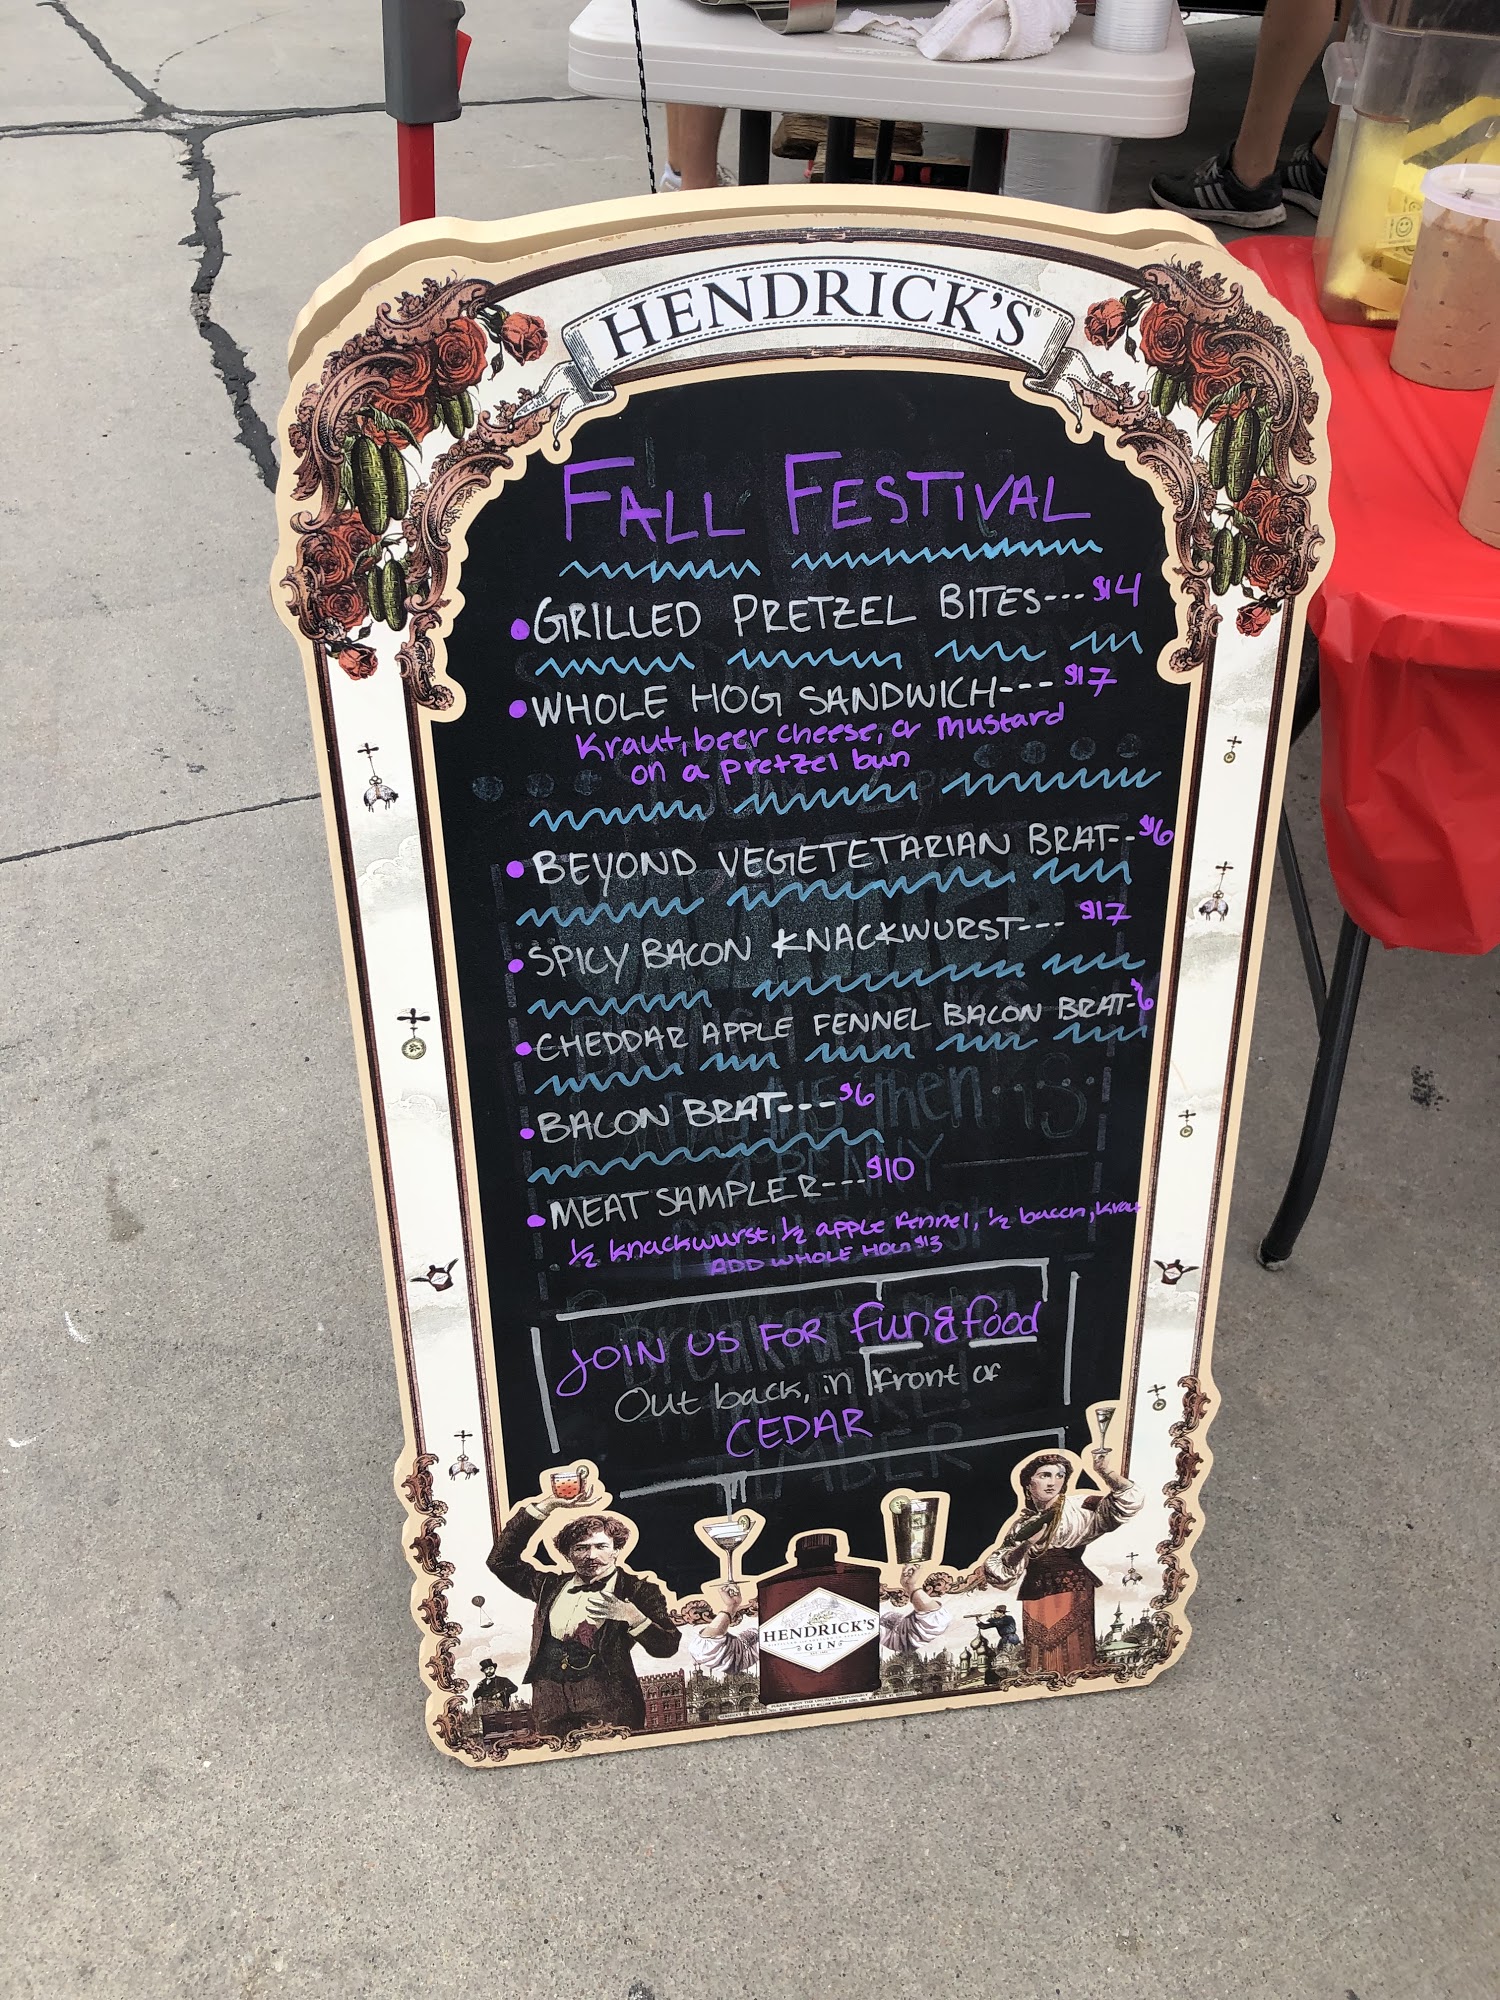 HENDRICK'S
FALL FESTIVAL
• GRILLED PRETZEL BITES---$4
• WHOLE HOG SANDWICH---$17
Kraut, beer cheese, or mustard
on a pretzel bun
• BEYOND VEGETETARIAN BRAT--$6
• SPICY BACON KNACKWURST---$17
• CHEDDAR APPLE FENNEL BACON BRAT-$6
• BACON BRAT---$6
• MEAT SAMPLER---$10
1/2 knackwurst, 1/2 apple fennel, 1/2 bacon, kraut
ADD WHOLE HOG $13
JOIN US FOR fun & food
Out back, in front of
CEDAR
HENDRICK'S
GIN